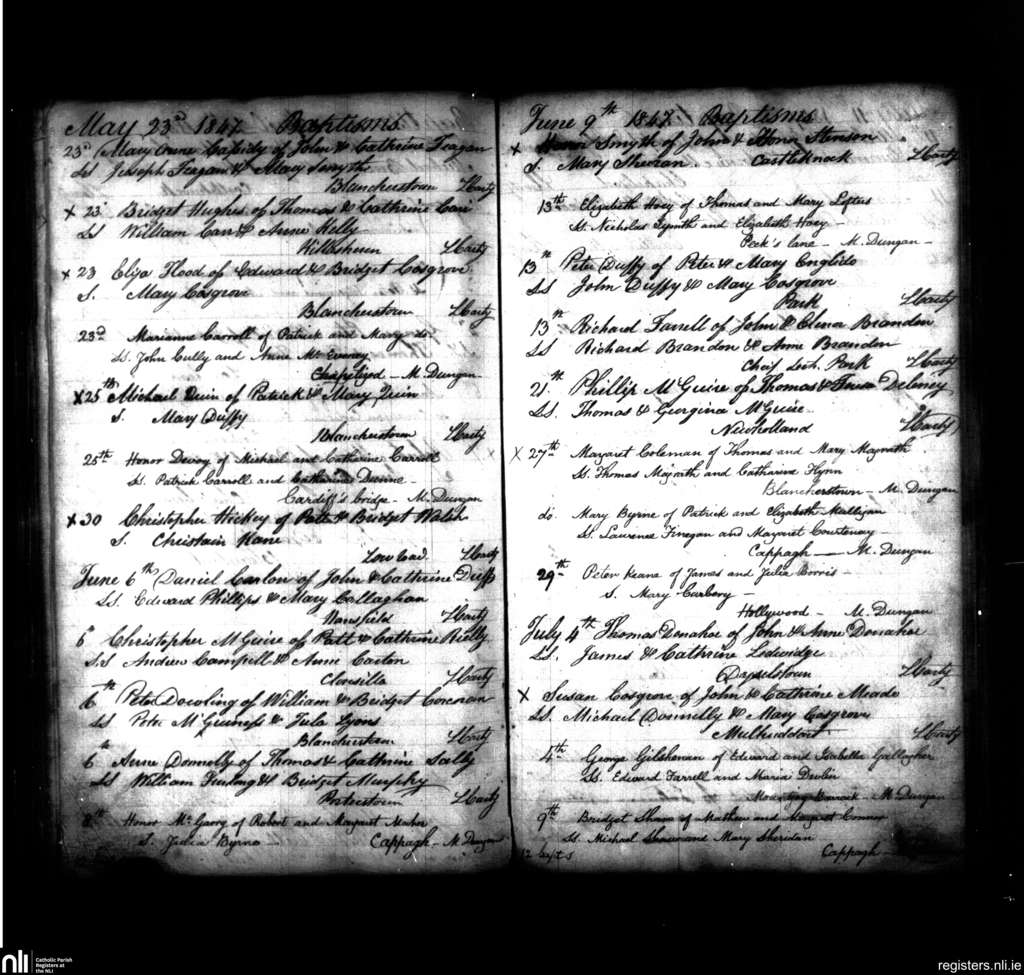 May 23d 1847 Baptisms
23d Mary Anne Cassidy of John & Cathrine Feagan
SS Jesseph Feagan & Mary Smyth
Blancherstown LCarty
x 23 Bridget Hughes of Thomas & Cathrine Carr
SS William Carr & Anne Kelly
LCarty
x 23 Eliza Flood of Edward & Bridget Cosgrove
S. Mary Cosgrove
Blancherstown LCarty
23d Marianne Carroll of Patrick and Mary do
SS. John Cully and Anne Mc Evenny
Chapelizod - M. Dungan
x 25th Michael Quin of Patrick & Mary Quin
S. Mary Duffy
Blancherstown LCarty
25th Honor Devoy of Michael and Catharine Carroll
SS. Patrick Carroll and Catharine Dunne -
Cardiff's bridge - M. Dungan
x 30 Christopher Hickey of Patk & Bridget Walsh
S. Christain Kane
Low road LCarty
June 6th Daniel Carlon of John & Cathrine Duff
SS. Edward Phillips & Mary Callaghan
LCarty
6 Christopher McGuire of Patt & Cathrine Rielly
SS Andrew Campell & Anne Carton
Clonsilla LCarty
6th Peter Dowling of William & Bridget Corcoran
SS Peter McGuiness & Julia Lyons
Blancherstown LCarty
6th Anne Donnolly of Thomas & Cathrine Sally
SS William Furlong & Bridget Murphy
Porterstown LCarty
8th Honor Mc Garry of Robert and Margaret Maher
S. Julia Byrne - Cappagh - M. Dungan
June 9th 1847 Baptisms
x Honor Smyth of John & Honor Stenson
S. Mary Sheridan Castleknock LCarty
13th Elizabeth Hoey of Thomas and Mary Loftus
SS. Nicholas Smith and Elizabeth Hoey -
Peck's lane - M. Dungan -
13th Peter Duffy of Peter & Mary English
SS John Duffy & Mary Cosgrove
Park LCarty
13th Richard Farrell of John & Elena Brandon
SS Richard Brandon & Anne Brandon
Park LCarty
21th Phillip McGuire of Thomas & Deleney
SS. Thomas & Georgina McGuire
Newholland LCarty
x 27th Margaret Coleman of Thomas and Mary Magrath
SS. Thomas Magrath and Catharine Flynn
Blancherstown - M. Dungan
do. Mary Byrne of Patrick and Elizabeth Mulligan
SS. Laurence Finegan and Margaret Courtenay
Cappagh - M. Dungan
29th Peter Keane of James and Julia Borris -
S. Mary Carbery -
Hollywood - M. Dungan
July 4th Thomas Donahoe of John & Anne Donahoe
SS. James & Cathrine Ledwidge
LCarty
x Susan Cosgrove of John & Cathrine Meade
SS. Michael Donnelly & Mary Cosgrove
Mulhuddart LCarty
4th George Gilshenan of Edward and Isabella Gallagher
SS. Edward Farrell and Maria Devlin
M. Dungan
9th Bridget Shaw of Mathew and Margaret Connor
SS. Michael and Mary Sheridan
Cappagh -
12 Bapts
nli
Catholic Parish
Registers at
the NLI
registers.nli.ie